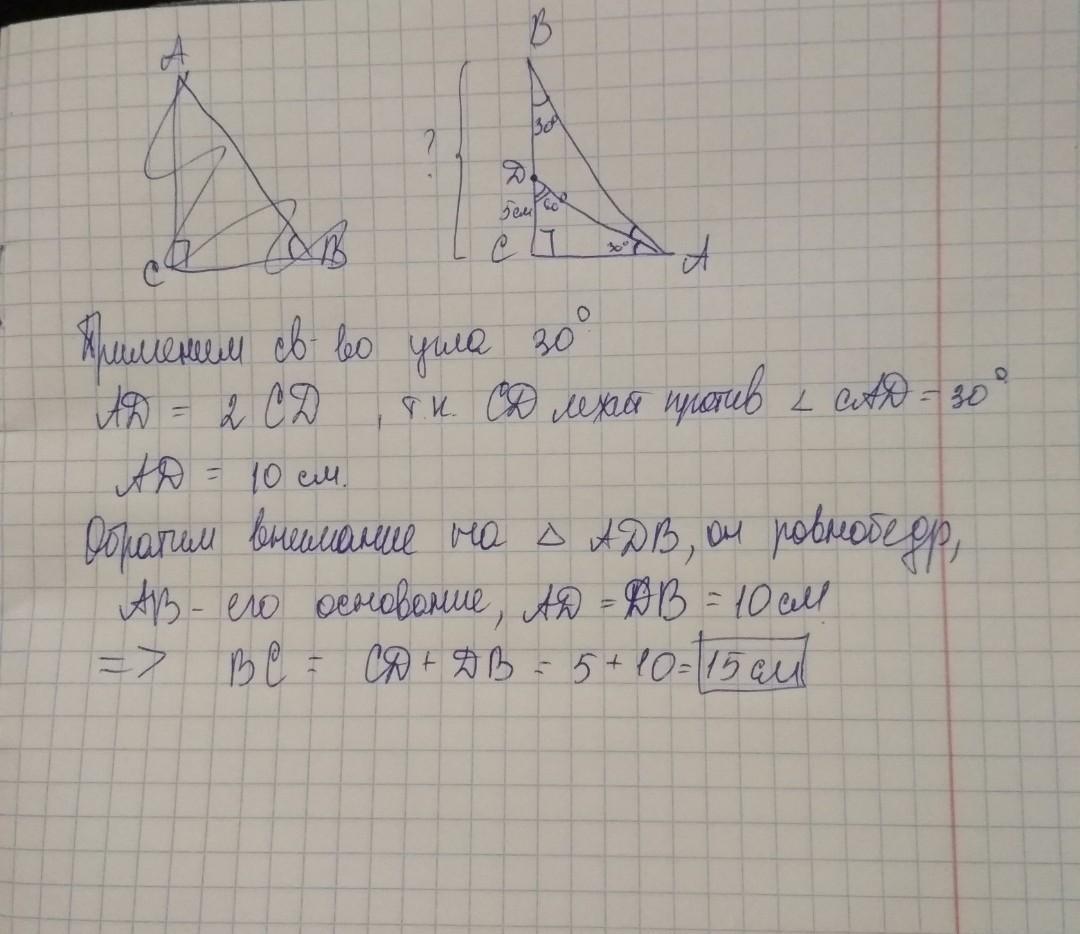 A
C
B
B
?
30°
D
5см
60°
C
30°
A
Применим св-во угла 30°
AD = 2 CD , т.к. CD лежит против ∠ CAD = 30°
AD = 10 см.
Обратим внимание на △ ADB, он равнобедр,
AB - его основание, AD = DB = 10 см
=> BC = CD + DB = 5 + 10 = 15 см